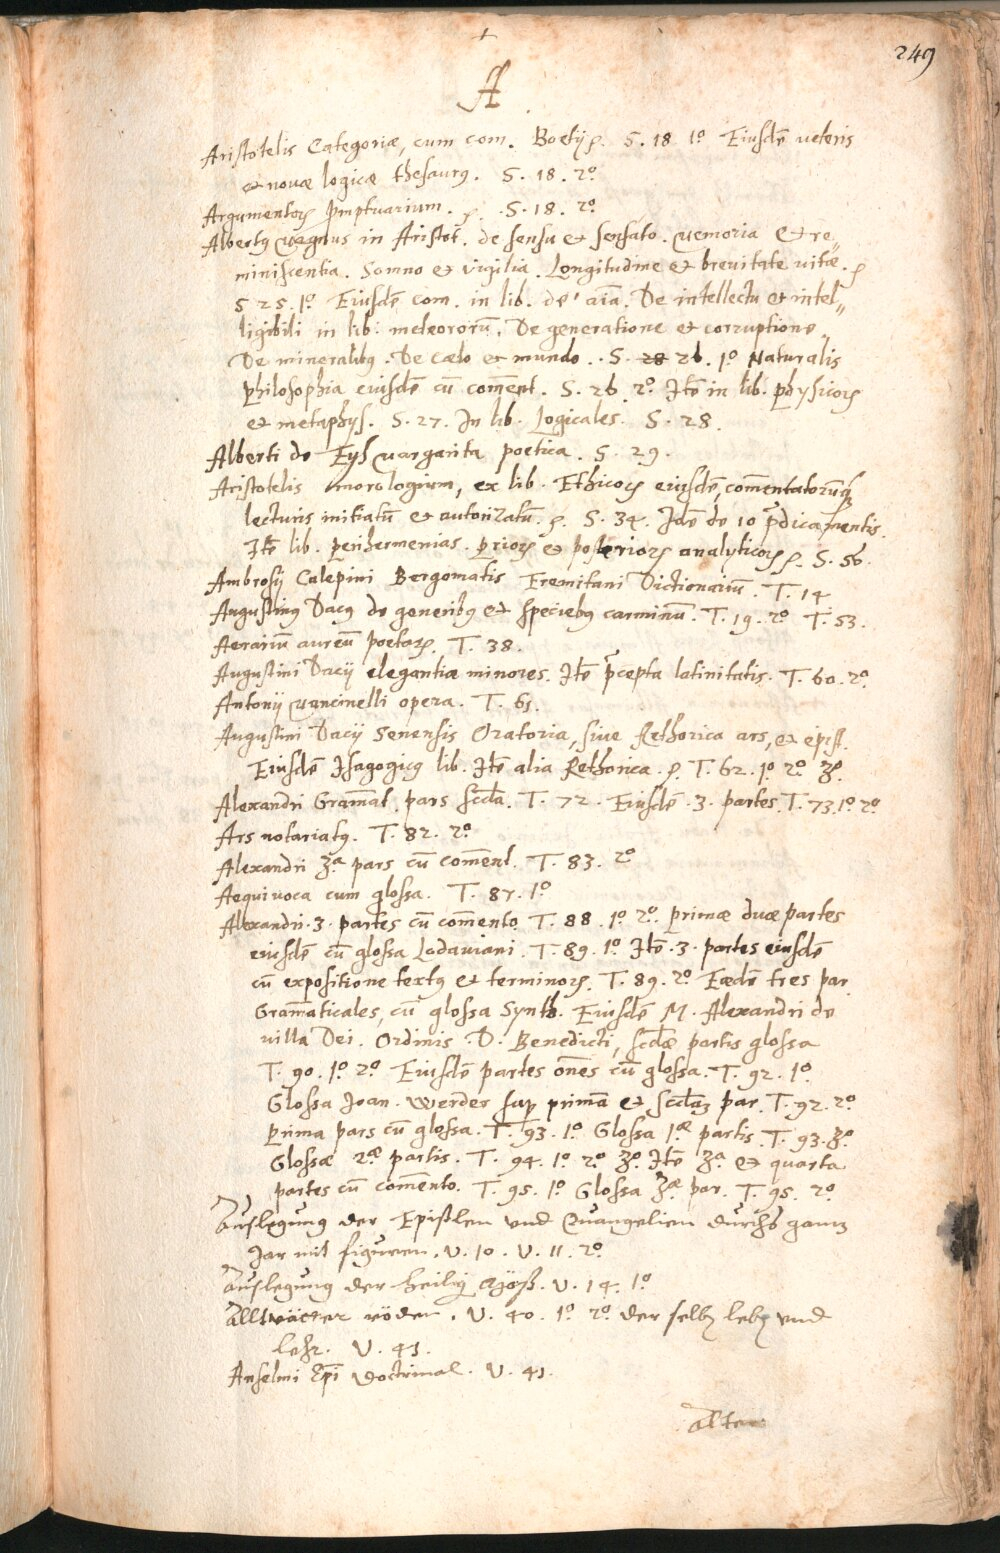 249
A
Aristotelis Categoriæ, cum com. Boetij ꝑ. S. 18 1º Eiusdē veteris
et novæ logicæ thesaurꝰ. S. 18. 2º
Argumentoꝝ promptuarium. ꝑ. S. 18. 2º
Albertꝰ Magnus in Aristot. de sensu et sensato. Memoria et re„
miniscentia. Somno et vigilia. Longitudine et brevitate vitæ. ꝑ
S 25. 1º Eiusdē com. in lib. de aīa. De intellectu et intel„
ligibili in lib: meteororū. De generatione et corruptione.
De mineralibꝰ. De cælo et mundo. S. 28 26. 1º Naturalis
philosophia eiusdē cū com̄ent. S. 26. 2º. Itē in lib. physicoꝝ
et metaphys. S. 27. In lib. Logicales. S. 28.
Alberti de Eyb Margarita poetica. S. 29.
Aristotelis morologium, ex lib. Ethicoꝝ eiusdē, com̄entatorūqꝫ
lecturis initiatū et autorizatū. ꝑ. S. 34. Idē de 10 p̄dicamentis.
Itē lib. perihermenias. prioꝝ et posterioꝝ analyticoꝝ ꝑ. S. 56.
Ambrosij Calepini Bergomatis Eremitani Dictionariū. T. 14
Augustinꝰ Dacꝰ de generibꝰ et speciebꝰ carminū. T. 19. 2º T. 53.
Aerariū aureū poetaꝝ. T. 38.
Augustini Dacij elegantiæ minores. Itē p̄cepta latinitatis. T. 60. 2º.
Antonij Mancinelli opera. T. 61.
Augustini Dacij Senensis Oratoria, sive Rethorica ars, et epist.
Eiusdē Isagogicꝰ lib. Itē alia Rethorica. ꝑ. T. 62. 1º. 2º. 3º.
Alexandri Gram̄at. pars scd̄a. T. 72. Eiusdē .3. partes. T. 73. 1º 2º
Ars notariatꝰ. T. 82. 2º
Alexandri 3ª pars cū com̄ent. T. 83. 2º
Aequivoca cum glossa. T. 87. 1º
Alexandri .3. partes cū com̄ento T. 88. 1º. 2º. primæ duæ partes
eiusdē cū glossa Lodaviani. T. 89. 1º Itē .3. partes eiusdē
cū expositione textꝰ et terminoꝝ. T. 89. 2º Eædē tres par.
Gram̄aticales, cū glossa Synth. Eiusdē M. Alexandri de
villa Dei. Ordinis .D. Benedicti, scd̄æ partis glossa
T. 90. 1º. 2º Eiusdē partes om̄es cū glossa. T. 92. 1º.
Glossa Joan. Werdes sup primā et scd̄am par. T. 92. 2º
prima pars cū glossa. T. 93. 1º Glossa 1æ partis T. 93. 3º
Glossæ 2æ partis. T. 94. 1º 2º 3º. Itē 3ª et quarta
partes cū com̄ento. T. 95. 1º Glossa 3æ par. T. 95. 2º
Auslegung der Epistlen und Evangelien durchs gantz
Jar mit figuren. V. 10. V. 11. 2º
Auslegung der heilig Mäß. V. 14. 1º
Alltvätter röden. V. 40. 1º 2º der selbē lebē und
lehr. V. 41.
Anselmi Epī doctrinal. V. 41.
Alten